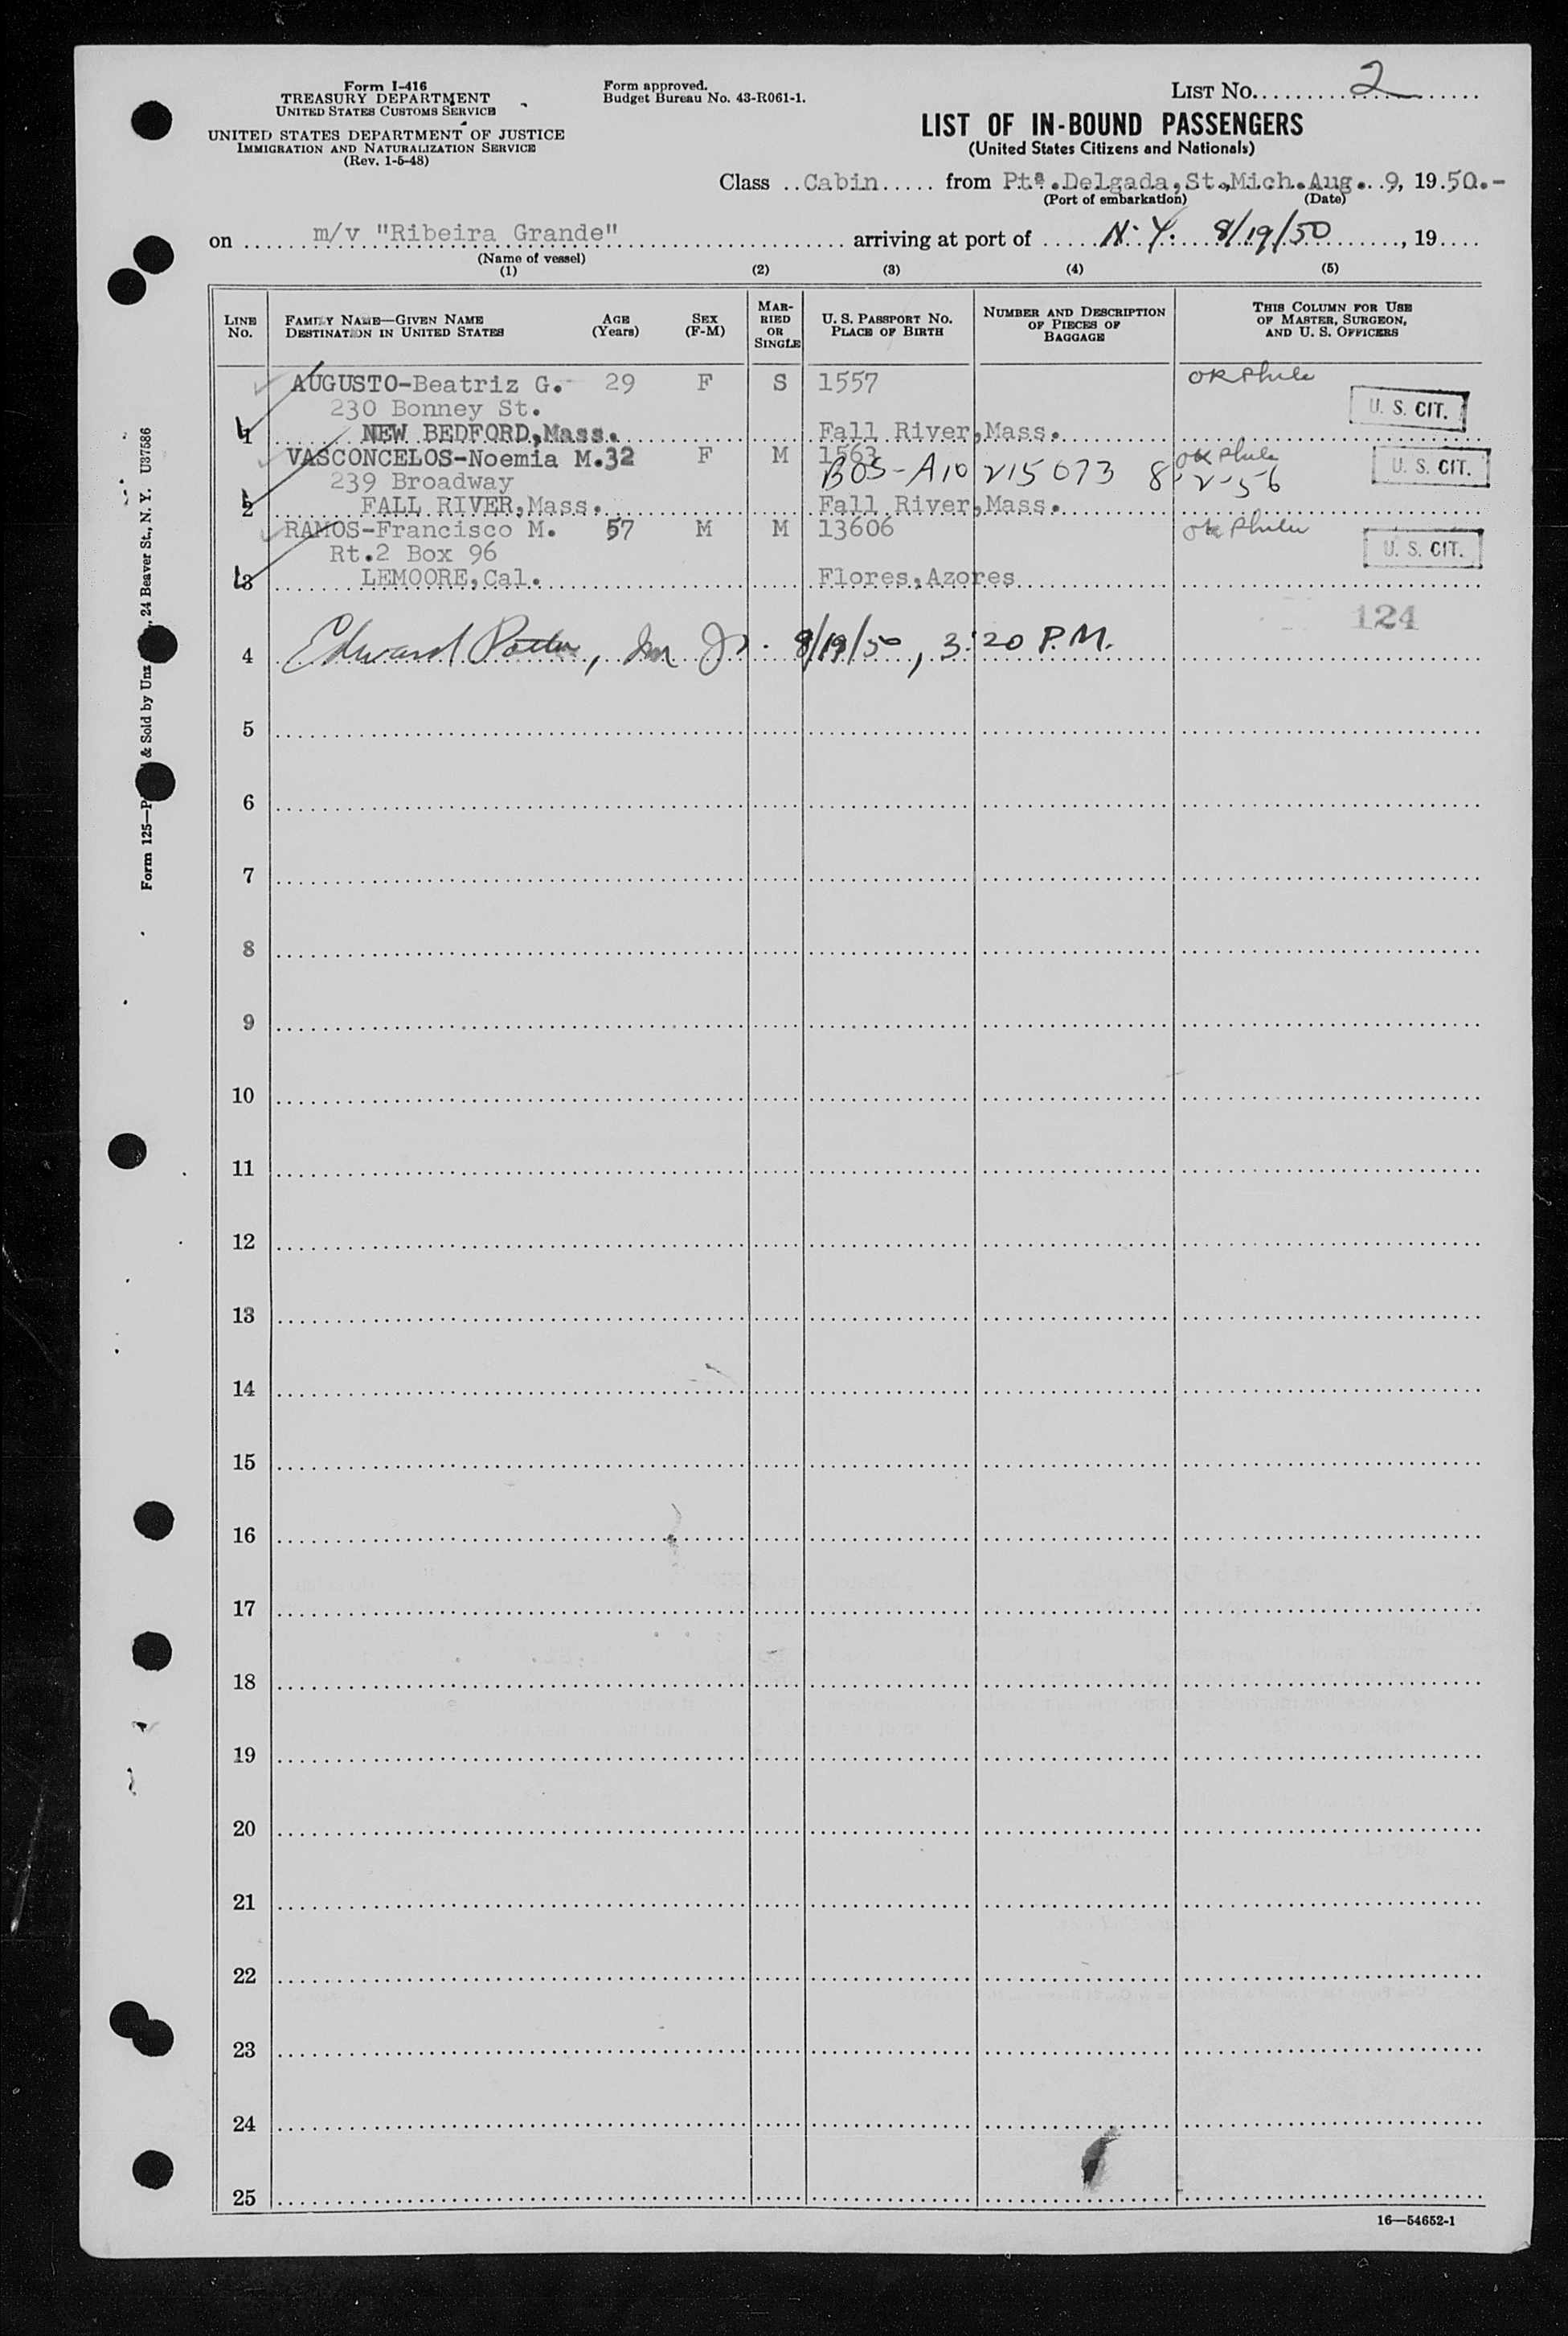 Form I-416
TREASURY DEPARTMENT
UNITED STATES CUSTOMS SERVICE
UNITED STATES DEPARTMENT OF JUSTICE
IMMIGRATION AND NATURALIZATION SERVICE
(Rev. 1-5-48)
Form approved.
Budget Bureau No. 43-R061-1.
LIST NO. 2
LIST OF IN-BOUND PASSENGERS
(United States Citizens and Nationals)
Class Cabin from Pta. Delgada, St. Mich. Aug. 9, 19 50.-
(Port of embarkation) (Date)
on m/v "Ribeira Grande" arriving at port of N.Y. 8/19/50, 19
(Name of vessel)
(1) (2) (3) (4) (5)
LINE NO.
FAMILY NAME—GIVEN NAME
DESTINATION IN UNITED STATES
AGE (Years)
SEX (F-M)
MARRIED OR SINGLE
U. S. PASSPORT NO.
PLACE OF BIRTH
NUMBER AND DESCRIPTION OF PIECES OF BAGGAGE
THIS COLUMN FOR USE OF MASTER, SURGEON, AND U. S. OFFICERS
AUGUSTO-Beatriz G. 29 F S 1557 OK
230 Bonney St. U. S. CIT.
1 NEW BEDFORD,Mass. Fall River,Mass.
VASCONCELOS-Noemia M. 32 F M 1563 OK
239 Broadway BOS-A10 215 073 8-2-56 U. S. CIT.
2 FALL RIVER,Mass. Fall River,Mass.
RAMOS-Francisco M. 57 M M 13606 OK
Rt.2 Box 96 U. S. CIT.
3 LEMOORE,Cal. Flores,Azores
124
4 Edward 8/19/50, 3:20 P.M.
5
6
7
8
9
10
11
12
13
14
15
16
17
18
19
20
21
22
23
24
25
16—54652-1
Form 125— & Sold by 24 Beaver St., N. Y. U37586